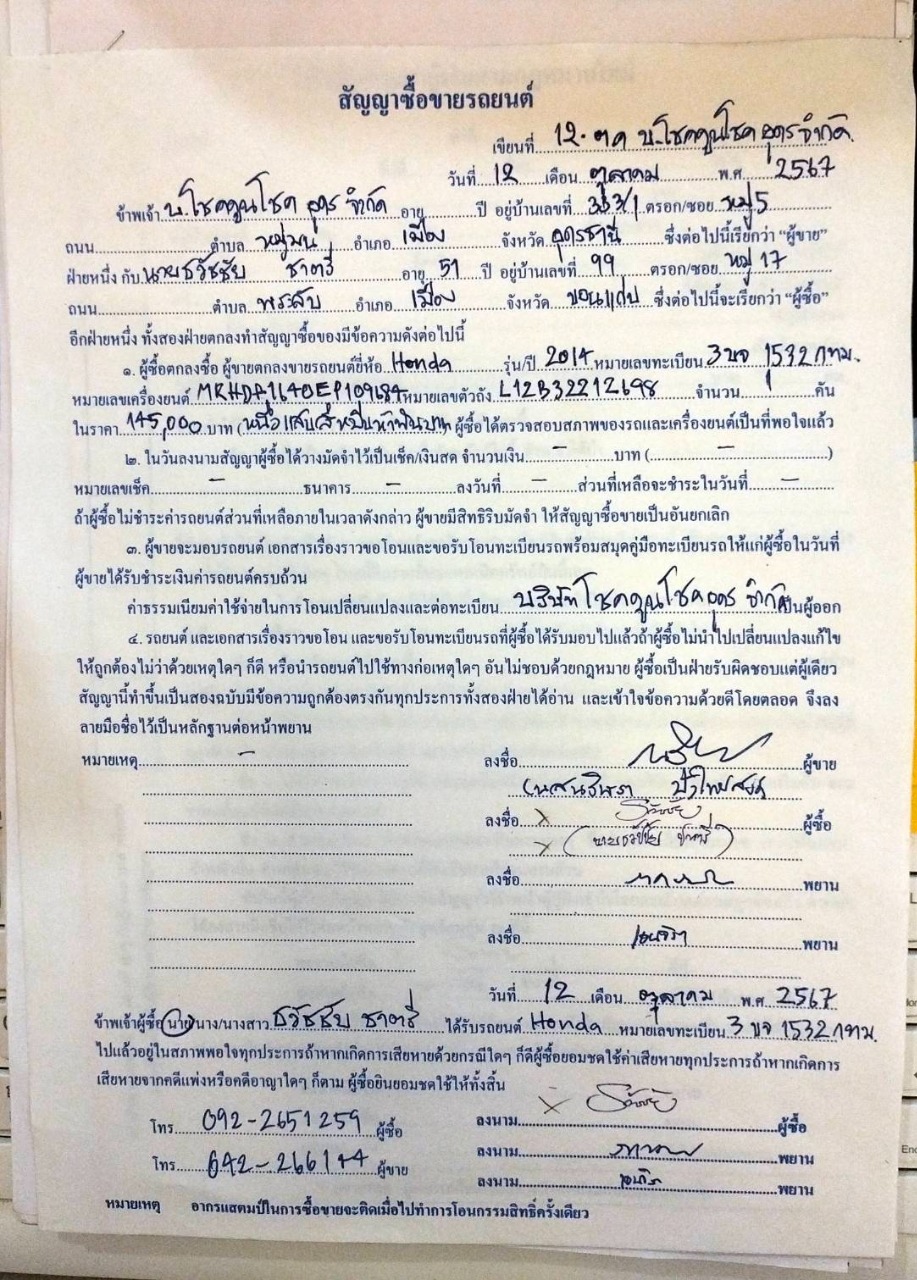 สัญญาซื้อขายรถยนต์
เขียนที่ 12. ตค บ.โชคคูนโชค อุดร จำกัด
วันที่ 12 เดือน ตุลาคม พ.ศ 2567
ข้าพเจ้า บ.โชคคูนโชค อุดร จำกัด อายุ ปี อยู่บ้านเลขที่ 333/1 ตรอก/ซอย หมู่ 5
ถนน ตำบล หมูม่น อำเภอ เมือง จังหวัด อุดรธานี ซึ่งต่อไปนี้เรียกว่า “ผู้ขาย”
ฝ่ายหนึ่ง กับ นายธวัชชัย ชาตรี อายุ 51 ปี อยู่บ้านเลขที่ 99 ตรอก/ซอย หมู่ 17
ถนน ตำบล พระลับ อำเภอ เมือง จังหวัด ขอนแก่น ซึ่งต่อไปนี้จะเรียกว่า “ผู้ซื้อ”
อีกฝ่ายหนึ่ง ทั้งสองฝ่ายตกลงทำสัญญาซื้อของมีข้อความดังต่อไปนี้
๑. ผู้ซื้อตกลงซื้อ ผู้ขายตกลงขายรถยนต์ยี่ห้อ Honda รุ่น/ปี 2014 หมายเลขทะเบียน 3 ขจ 1532 กทม.
หมายเลขเครื่องยนต์ MRHDA1640EP109684 หมายเลขตัวถัง L12B32212698 จำนวน 1 คัน
ในราคา 145,000 บาท (หนึ่งแสนสี่หมื่นห้าพันบาท) ผู้ซื้อได้ตรวจสอบสภาพของรถและเครื่องยนต์เป็นที่พอใจแล้ว
๒. ในวันลงนามสัญญาผู้ซื้อได้วางมัดจำไว้เป็นเช็ค/เงินสด จำนวนเงิน - บาท ( - )
หมายเลขเช็ค - ธนาคาร - ลงวันที่ - ส่วนที่เหลือจะชำระในวันที่ -
ถ้าผู้ซื้อไม่ชำระค่ารถยนต์ส่วนที่เหลือภายในเวลาดังกล่าว ผู้ขายมีสิทธิริบมัดจำ ให้สัญญาซื้อขายเป็นอันยกเลิก
๓. ผู้ขายจะมอบรถยนต์ เอกสารเรื่องราวขอโอนและขอรับโอนทะเบียนรถพร้อมสมุดคู่มือทะเบียนรถให้แก่ผู้ซื้อในวันที่
ผู้ขายได้รับชำระเงินค่ารถยนต์ครบถ้วน
ค่าธรรมเนียมค่าใช้จ่ายในการโอนเปลี่ยนแปลงและต่อทะเบียน บริษัท โชคคูนโชคอุดร จำกัด เป็นผู้ออก
๔. รถยนต์ และเอกสารเรื่องราวขอโอน และขอรับโอนทะเบียนรถที่ผู้ซื้อได้รับมอบไปแล้วถ้าผู้ซื้อไม่นำไปเปลี่ยนแปลงแก้ไข
ให้ถูกต้องไม่ว่าด้วยเหตุใดๆ ก็ดี หรือนำรถยนต์ไปใช้ทางก่อเหตุใดๆ อันไม่ชอบด้วยกฎหมาย ผู้ซื้อเป็นฝ่ายรับผิดชอบแต่ผู้เดียว
สัญญานี้ทำขึ้นเป็นสองฉบับมีข้อความถูกต้องตรงกันทุกประการทั้งสองฝ่ายได้อ่าน และเข้าใจข้อความด้วยดีโดยตลอด จึงลง
ลายมือชื่อไว้เป็นหลักฐานต่อหน้าพยาน
หมายเหตุ - ลงชื่อ ผู้ขาย
ลงชื่อ ธวัชชัย ผู้ซื้อ
(นายธวัชชัย ชาตรี)
ลงชื่อ พยาน
ลงชื่อ พยาน
วันที่ 12 เดือน ตุลาคม พ.ศ 2567
ข้าพเจ้าผู้ซื้อ นาย/นาง/นางสาว ธวัชชัย ชาตรี ได้รับรถยนต์ Honda หมายเลขทะเบียน 3 ขจ 1532 กทม.
ไปแล้วอยู่ในสภาพพอใจทุกประการถ้าหากเกิดการเสียหายด้วยกรณีใดๆ ก็ดีผู้ซื้อยอมชดใช้ค่าเสียหายทุกประการถ้าหากเกิดการ
เสียหายจากคดีแพ่งหรือคดีอาญาใดๆ ก็ตาม ผู้ซื้อยินยอมชดใช้ให้ทั้งสิ้น
โทร 092-2651259 ผู้ซื้อ ลงนาม ธวัชชัย ผู้ซื้อ
โทร 042-266144 ผู้ขาย ลงนาม พยาน
ลงนาม พยาน
หมายเหตุ อากรแสตมป์ในการซื้อขายจะติดเมื่อไปทำการโอนกรรมสิทธิ์ครั้งเดียว